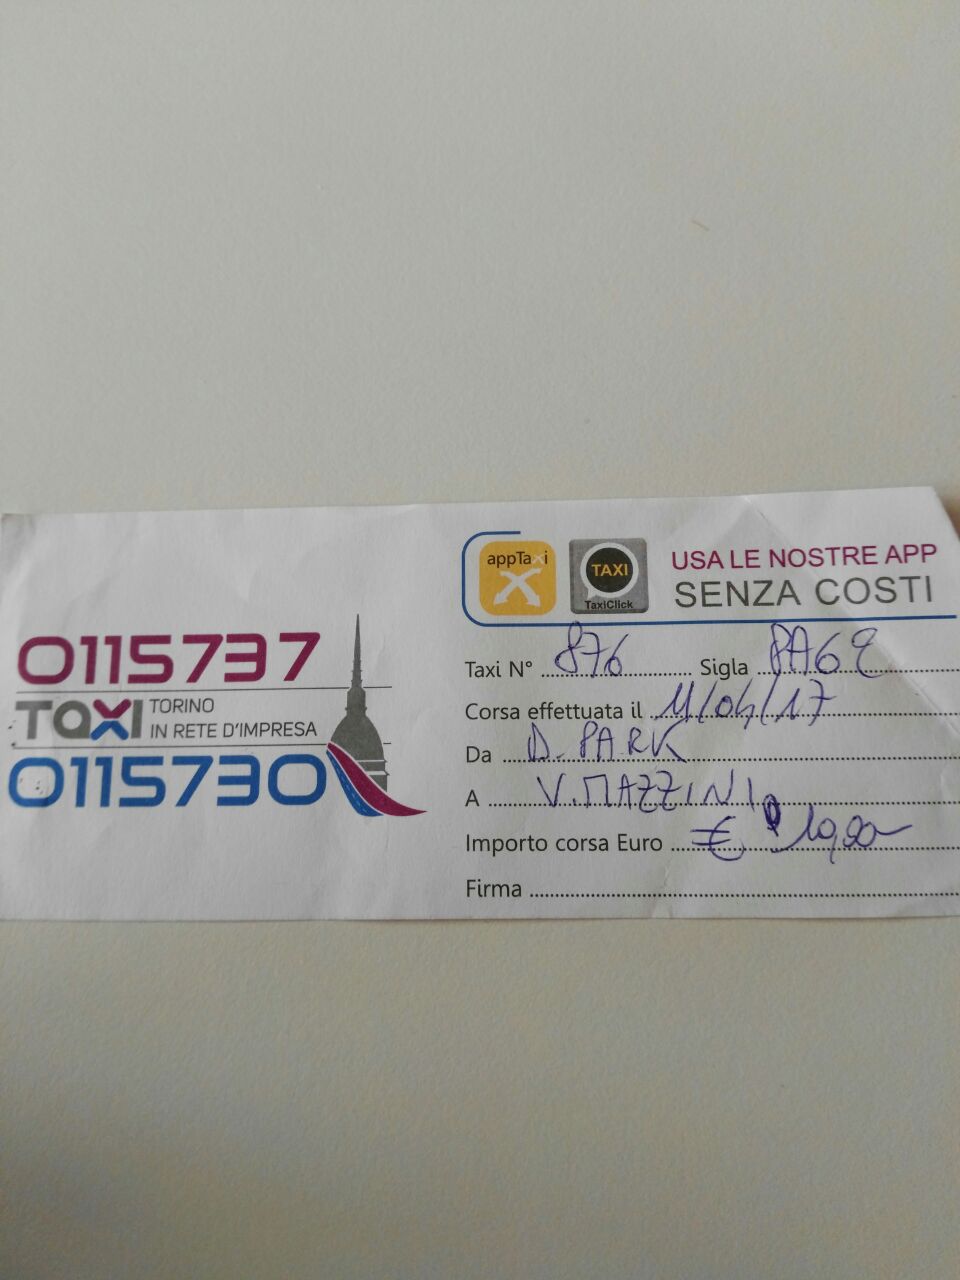 0115737
TAXI TORINO
IN RETE D'IMPRESA
0115730
appTaxi
TAXI
TaxiClick
USA LE NOSTRE APP
SENZA COSTI
Taxi N° 876 Sigla
Corsa effettuata il 11/04/17
Da D. PARK
A V. MAZZINI
Importo corsa Euro €
Firma